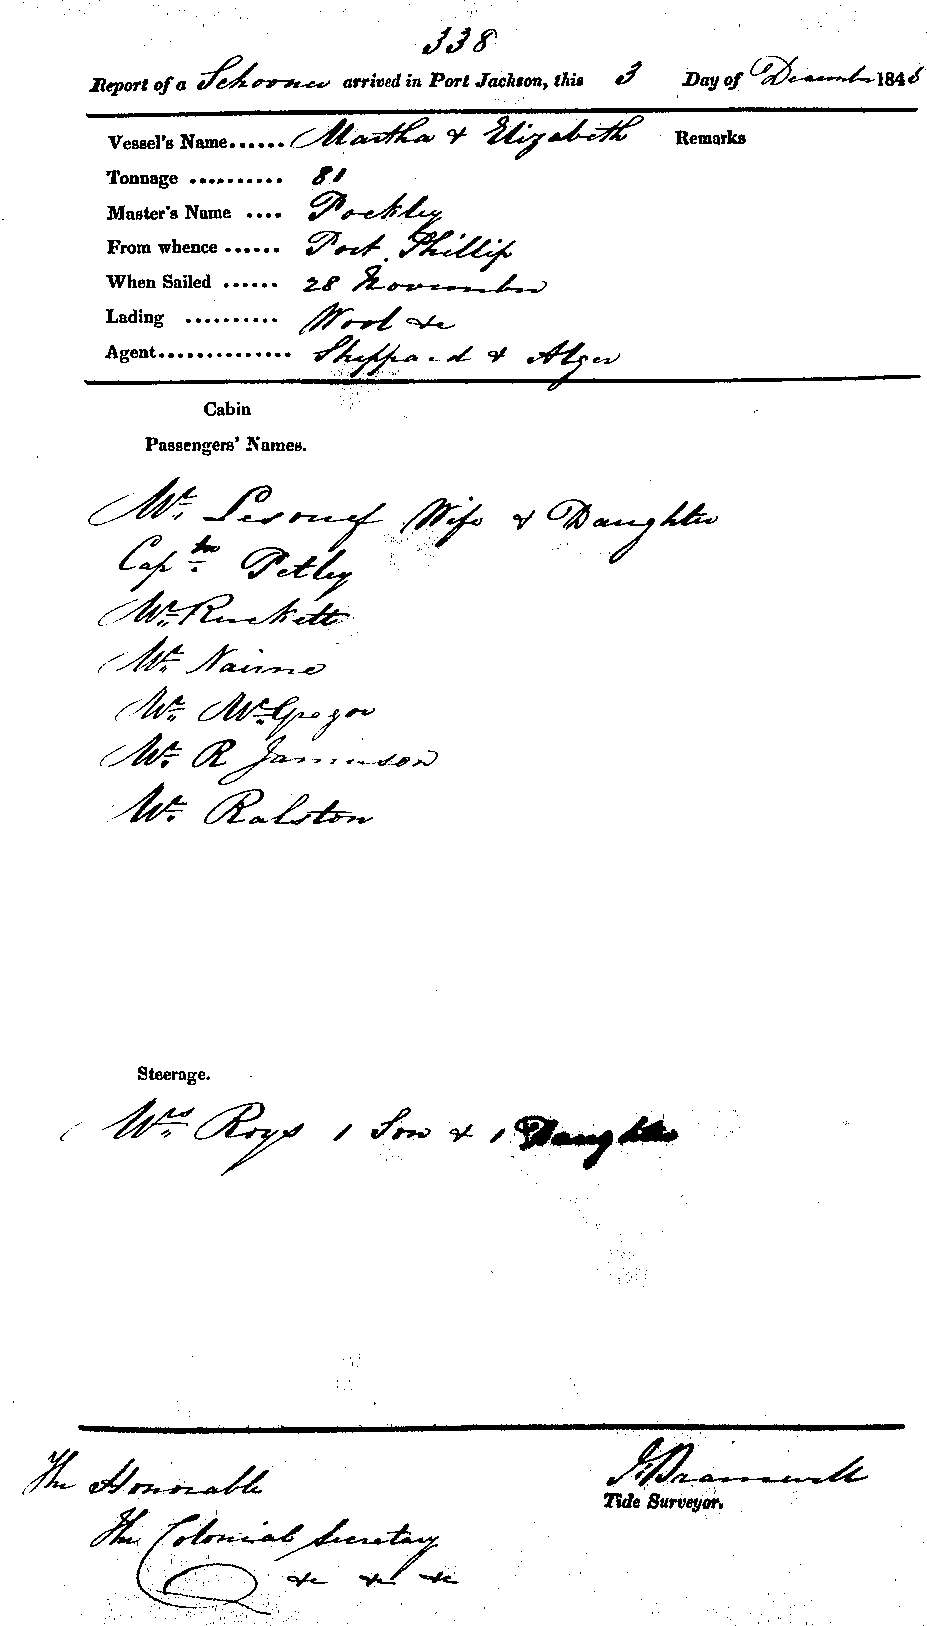 338
Report of a Schooner arrived in Port Jackson, this 3 Day of December 1845
Vessel's Name...... Martha & Elizabeth Remarks
Tonnage .......... 81
Master's Name .... Pockley
From whence ...... Port Phillip
When Sailed ...... 28 November
Lading .......... Wool &c
Agent.............. Sheppard & Alger
Cabin
Passengers' Names.
Mr. Lesouef Wife & Daughter
Captn. Petley
Mr. Ruckett
Mr. Nairne
Mr. McGregor
Mr. R Jamieson
Mr. Ralston
Steerage.
Mrs. Roys 1 Son & 1 Daughter
The Honorable
Bramwell
Tide Surveyor.
The Colonial Secretary
&c &c &c